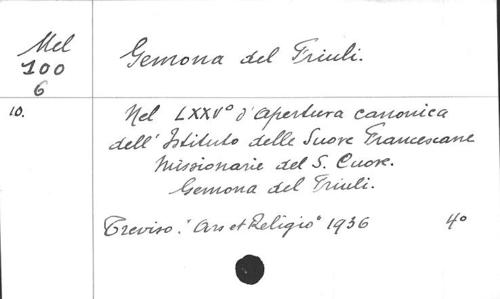 Mel
100
6
Gemona del Friuli.
10.
Nel LXXV° d'apertura canonica
dell' Istituto delle Suore Francescane
Missionarie del S. Cuore.
Gemona del Friuli.
Treviso. "Ars et Religio" 1936 4°